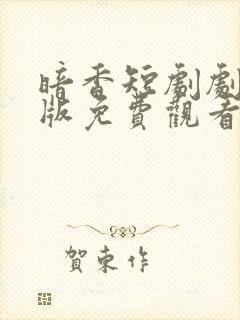 暗香短劇劇
版免費觀看
賀東作